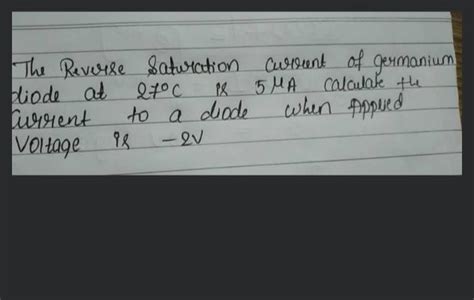 The Reverse Saturation current of germanium
diode at 27°C is 5 µA calculate the
current to a diode when Applied
Voltage is -2V